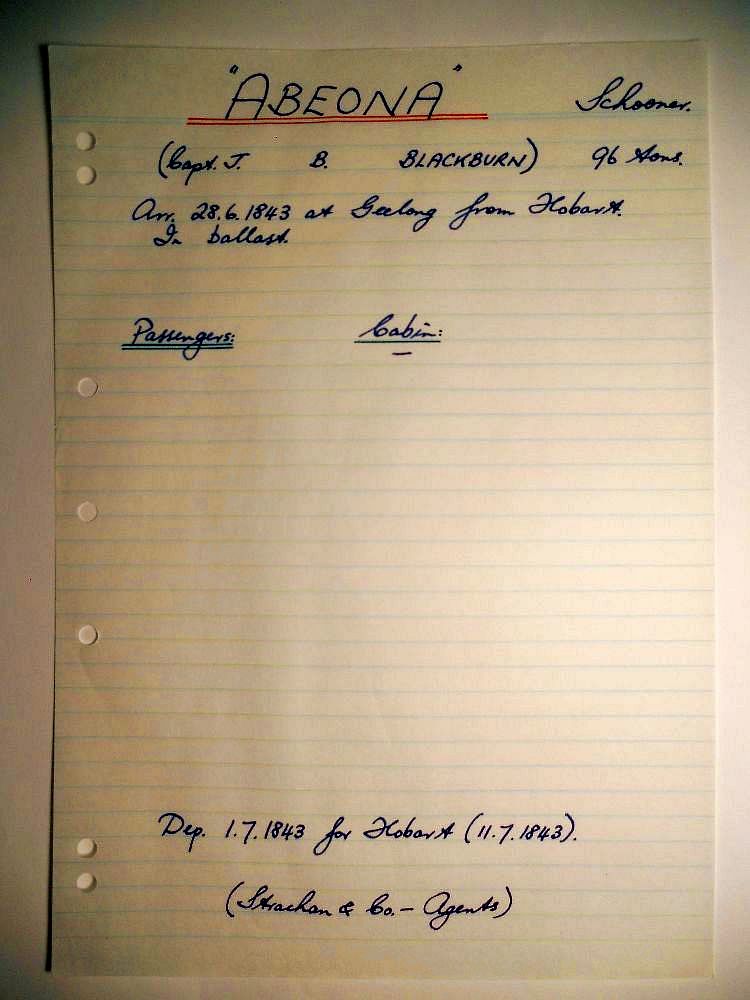 "ABEONA" Schooner.
(Capt. J. B. BLACKBURN) 96 tons.
Arr. 28.6.1843 at Geelong from Hobart.
In ballast.
Passengers: Cabin:
—
Dep. 1.7.1843 for Hobart (11.7.1843).
(Strachan & Co. - Agents)